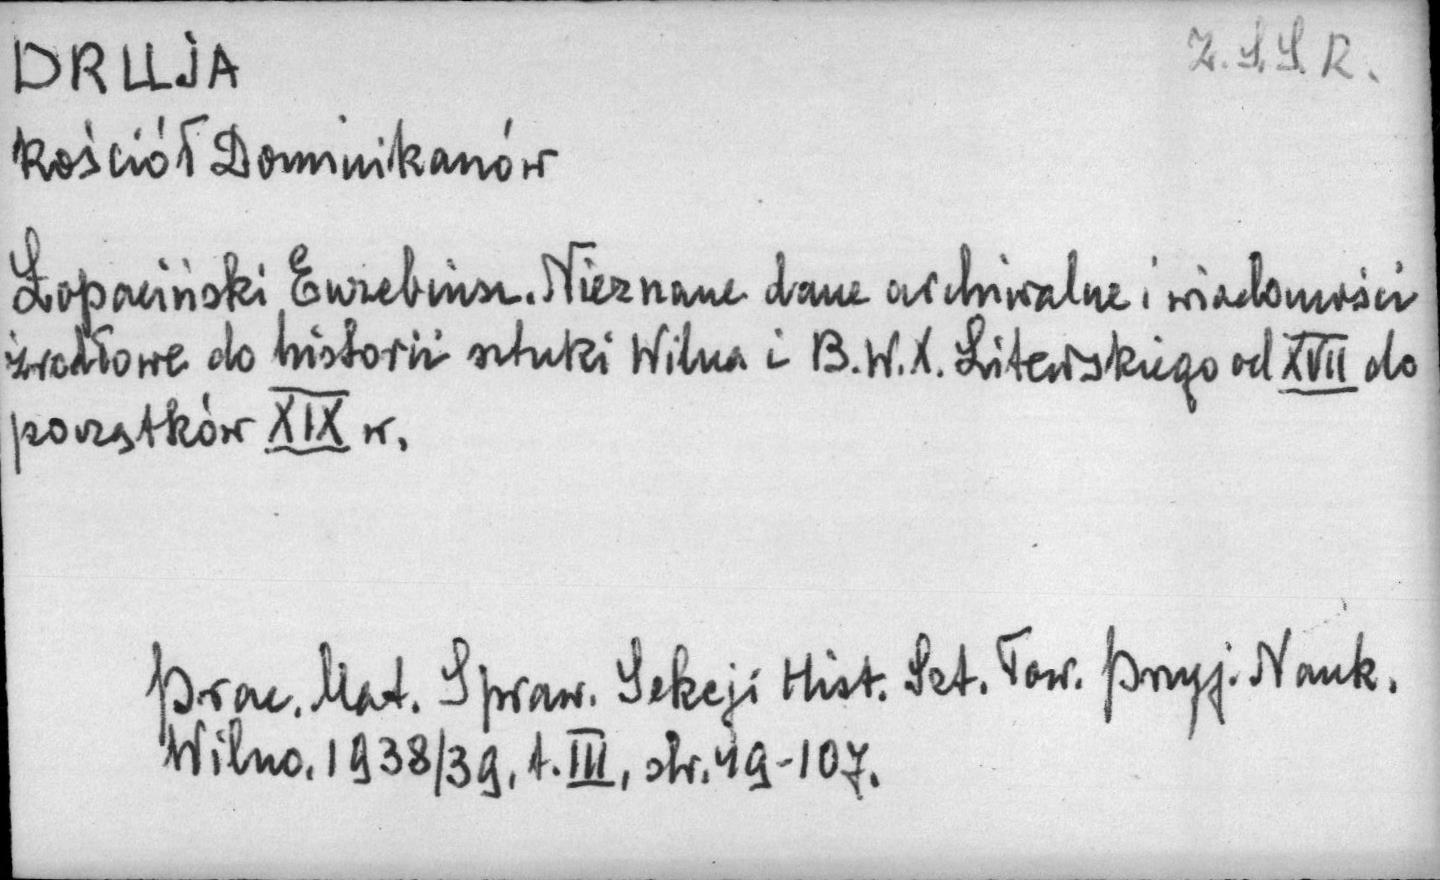 DRUJA
Z.S.S.R.
Kościół Dominikanów
Łopaciński Euzebiusz. Nieznane dane archiwalne i wiadomości
źródłowe do historii sztuki Wilna i B.W.X. Litewskiego od XVII do
początków XIX w.
Prac. Mat. Spraw. Sekcji Hist. Szt. Tow. Przyj. Nauk.
Wilno. 1938/39, t. III, str. 49-107.